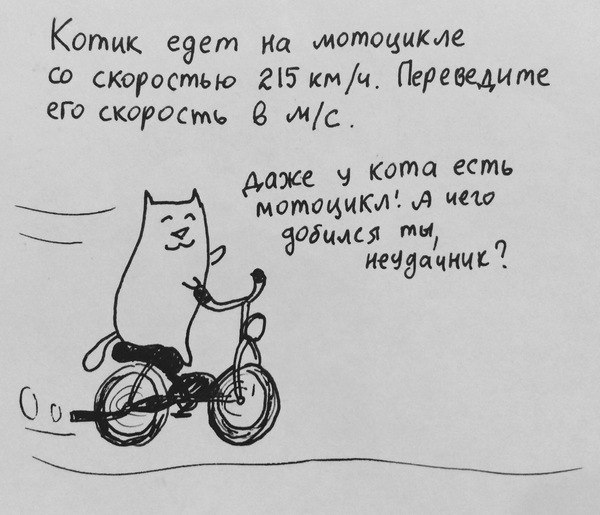 Котик едет на мотоцикле
со скоростью 215 км/ч. Переведите
его скорость в м/с.
даже у кота есть
мотоцикл! А чего
добился ты,
неудачник?